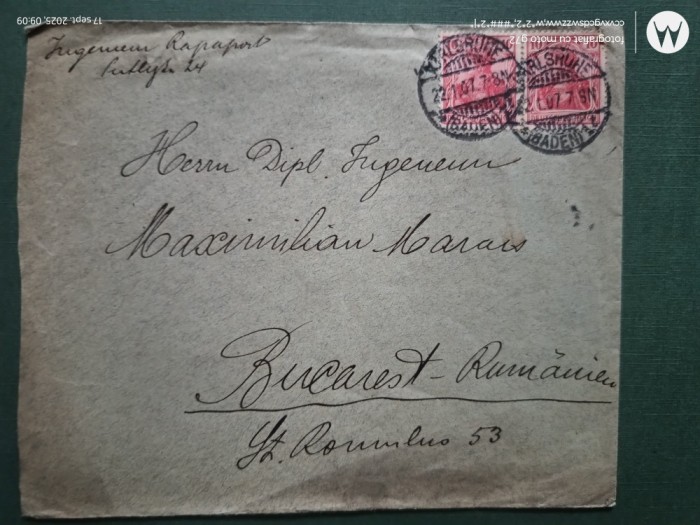 Ingenieur Rapaport
24
KARLSRUHE
22.1.07.7-8N.
(BADEN)
KARLSRUHE
22.1.07.7-8N.
(BADEN)
Herrn Dipl. Ingenieur
Maximilian Marcus
Bucarest - Rumänien
St. Romulus 53
fotografiat cu moto g72
ccvxvgcdswzzvwwz,"2,"2,"###,"2,"|
17 sept. 2025, 09:09